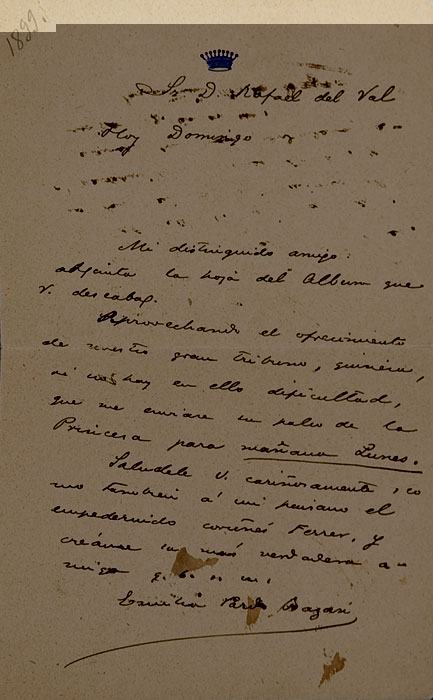 1899.
Sr. D. Rafael del Val
Hoy Domingo
Mi distinguido amigo:
adjunta la hoja del Album que
V. deseaba.
Aprovechando el ofrecimiento
de nuestro gran tribuno, quisiera,
si no hay en ello dificultad,
que me enviase su palco de la
Princesa para mañana Lunes.
Saludele V. cariñosamente, co
mo tambien á mi paisano el
empedernido coruñés Ferrer, y
créame su más verdadera a-
miga q. b. s. m.
Emilia Pardo Bazán